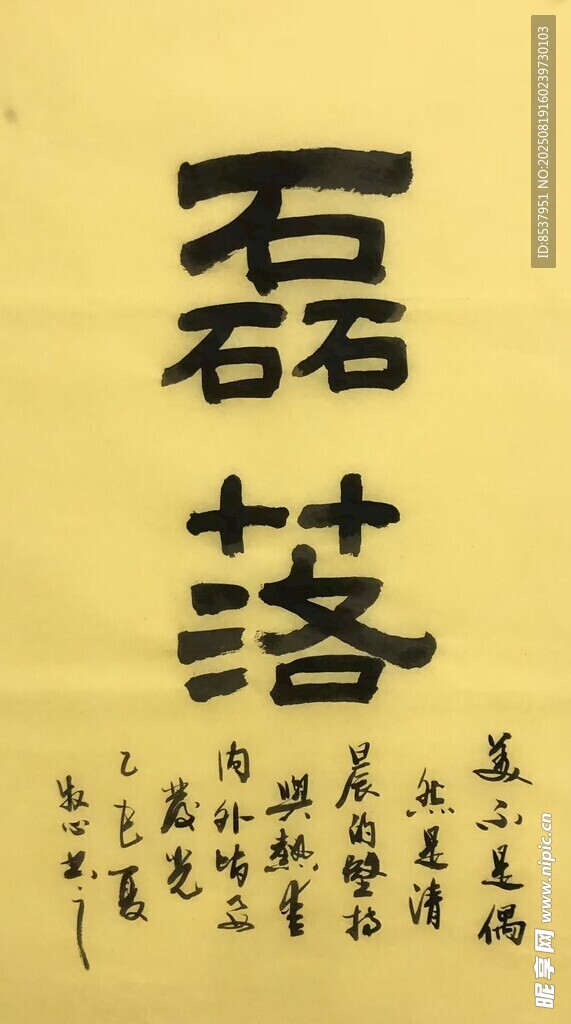 磊落
美不是偶
然是清
晨的堅持
與熱愛
内外皆要
發光
乙巳夏
心書
ID:8537951 NO:20250819160239730103
昵享网 www.nipic.cn